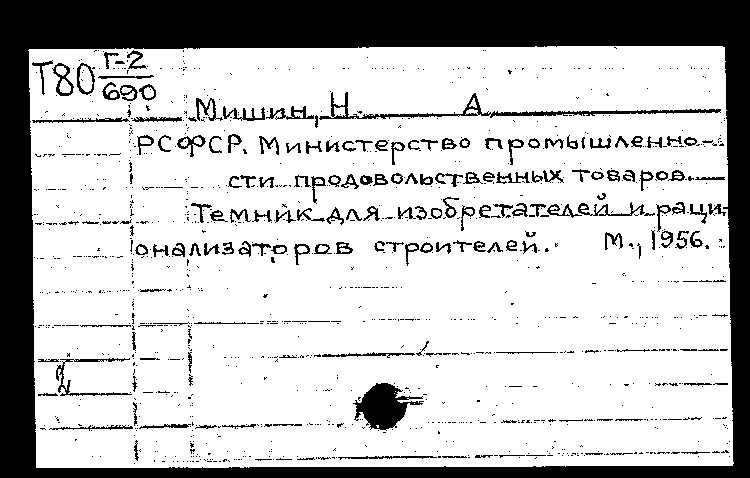 Т80 Г-2
690
Мишин, Н. А
РСФСР. Министерство промышленно-
сти продовольственных товаров.
Темник для изобретателей и раци-
онализаторов строителей. М., 1956.
2